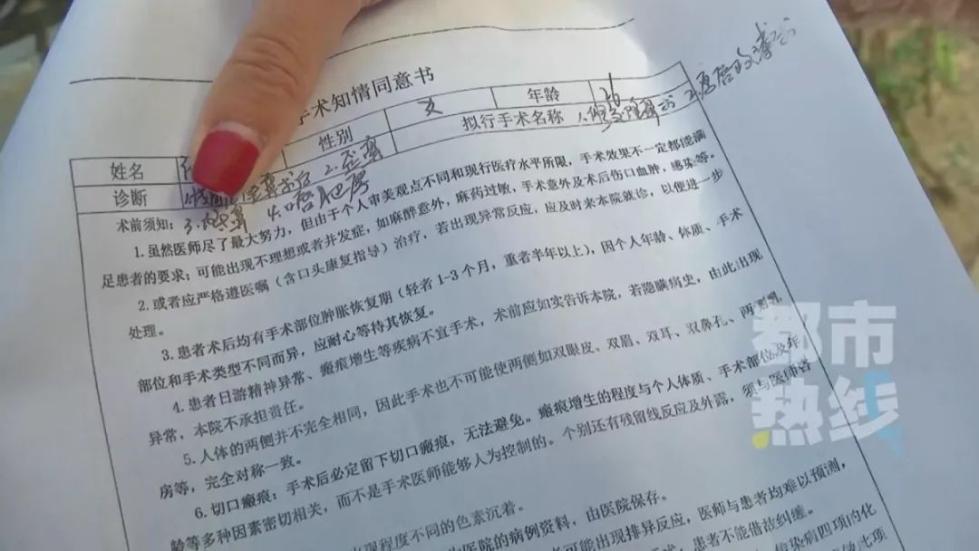 手术知情同意书
姓名 性别 女 年龄 26
诊断 拟行手术名称
术前须知:
1.虽然医师尽了最大努力,但由于个人审美观点不同和现行医疗水平所限,手术效果不一定都能满
足患者的要求;可能出现不理想或者并发症,如麻醉意外,麻药过敏,手术意外及术后伤口血肿,感染等。
2.或者应严格遵医嘱(含口头康复指导)治疗,若出现异常反应,应及时来本院就诊,以便进一步
处理。
3.患者术后均有手术部位肿胀恢复期(轻者1-3个月,重者半年以上),因个人年龄、体质、手术
部位和手术类型不同而异,应耐心等待其恢复。
4.患者日游精神异常、瘢痕增生等疾病不宜手术,术前应如实告诉本院,若隐瞒病史,由此出现
异常,本院不承担责任。
5.人体的两侧并不完全相同,因此手术也不可能使两侧如双眼皮、双眉、双耳、双鼻孔、两侧乳
房等,完全对称一致。
6.切口瘢痕:手术后必定留下切口瘢痕,无法避免。瘢痕增生的程度与个人体质、手术部位及年
龄等多种因素密切相关,而不是手术医师能够人为控制的。个别还有残留线反应及外露,须与医师咨
出现程度不同的色素沉着。
医院的病例资料,由医院保存。
可能出现排异反应,医师与患者均难以预测,
患者不能借故纠缠。
传染病四项的化
都市
热线